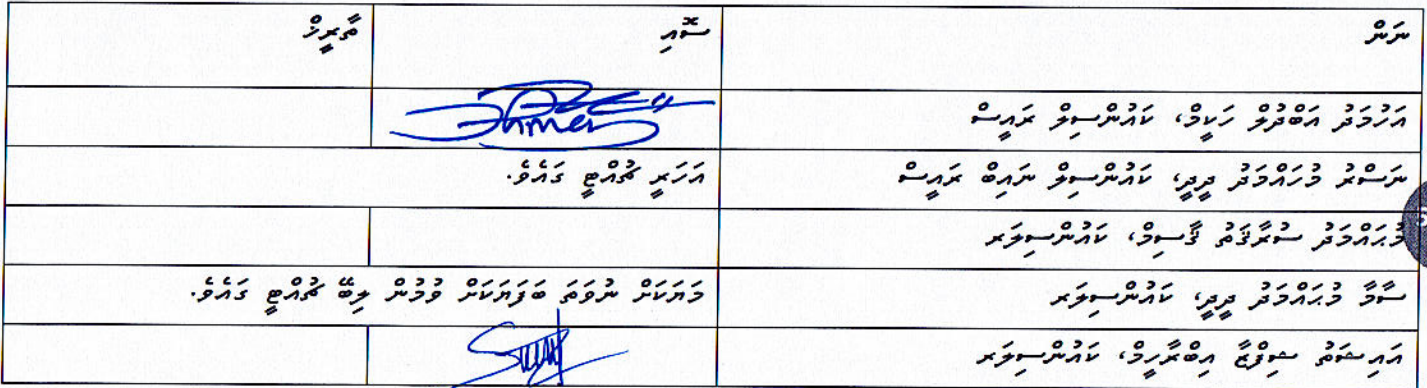 ނަން ސޮއި ތާރީޚް
އަހުމަދު އަބްދުލް ހަކީމް، ކައުންސިލް ރައީސް
ނަސްރު މުހައްމަދު ދީދީ، ކައުންސިލް ނައިބް ރައީސް އަހަރީ ޗުއްޓީ ގައެވެ.
މުޙައްމަދު ސުރާޤަތު ޤާސިމް، ކައުންސިލަރ
ސާމާ މުޙައްމަދު ދީދީ، ކައުންސިލަރ މަޔަކަށް ނުވަތަ ބަފަޔަކަށް ވުމުން ލިބޭ ޗުއްޓީ ގައެވެ.
އައިޝަތު ޝިފްޒާ އިބްރާހީމް، ކައުންސިލަރ